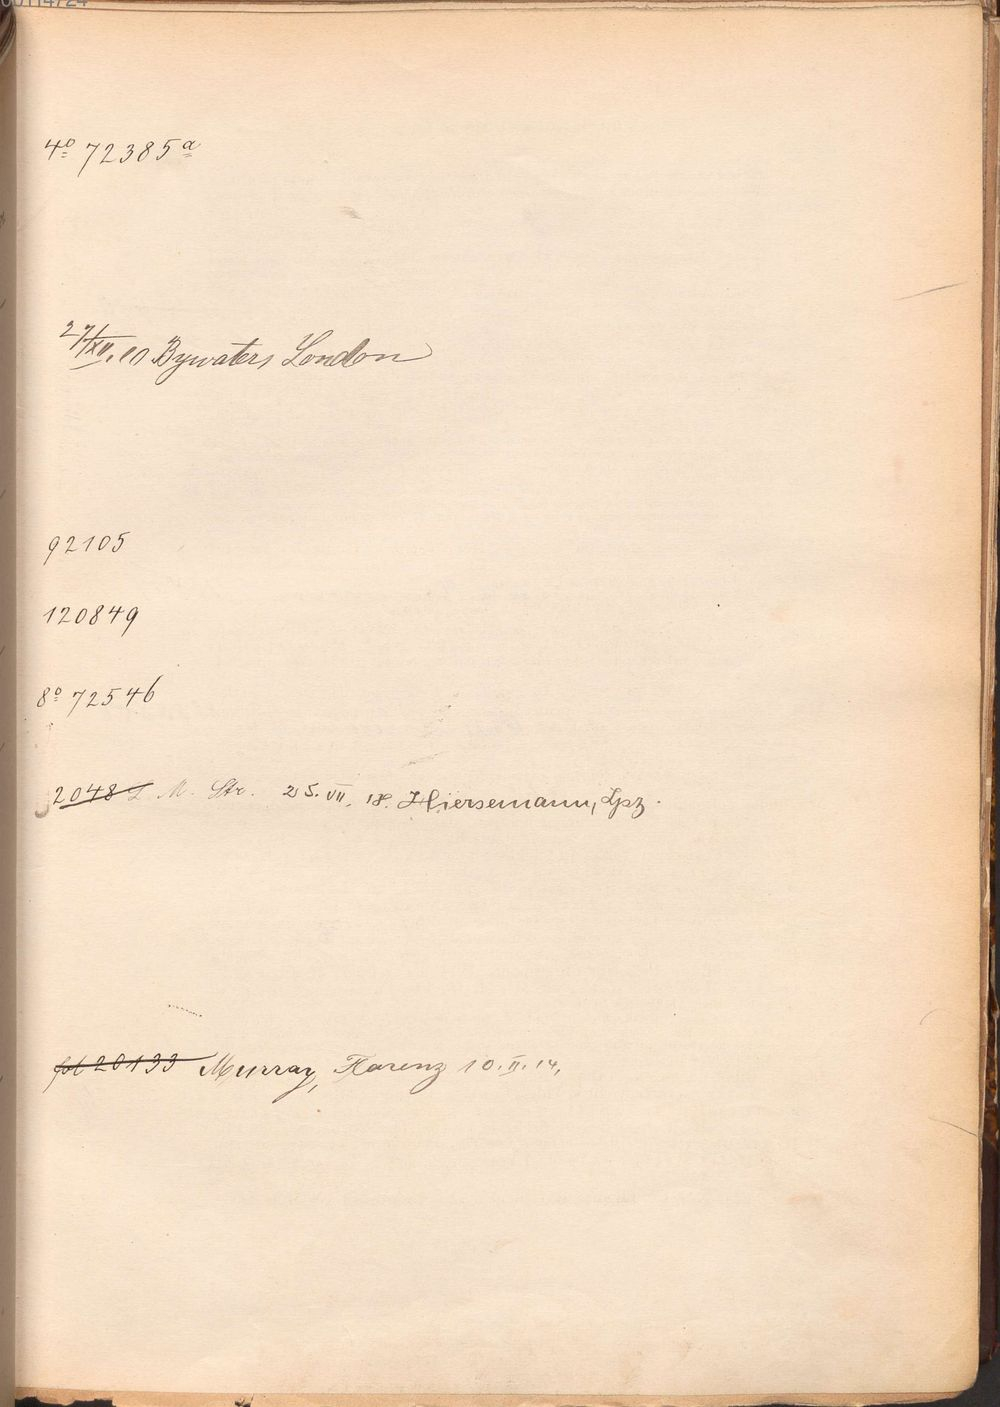 4º 72385ª
27/XII.10 Bywaters London
92105
120849
8º 72546
2048 L M. Str. 25. VII. 18. Hiersemann, Lpz.
fol 20133 Murray, Florenz 10. II. 14.